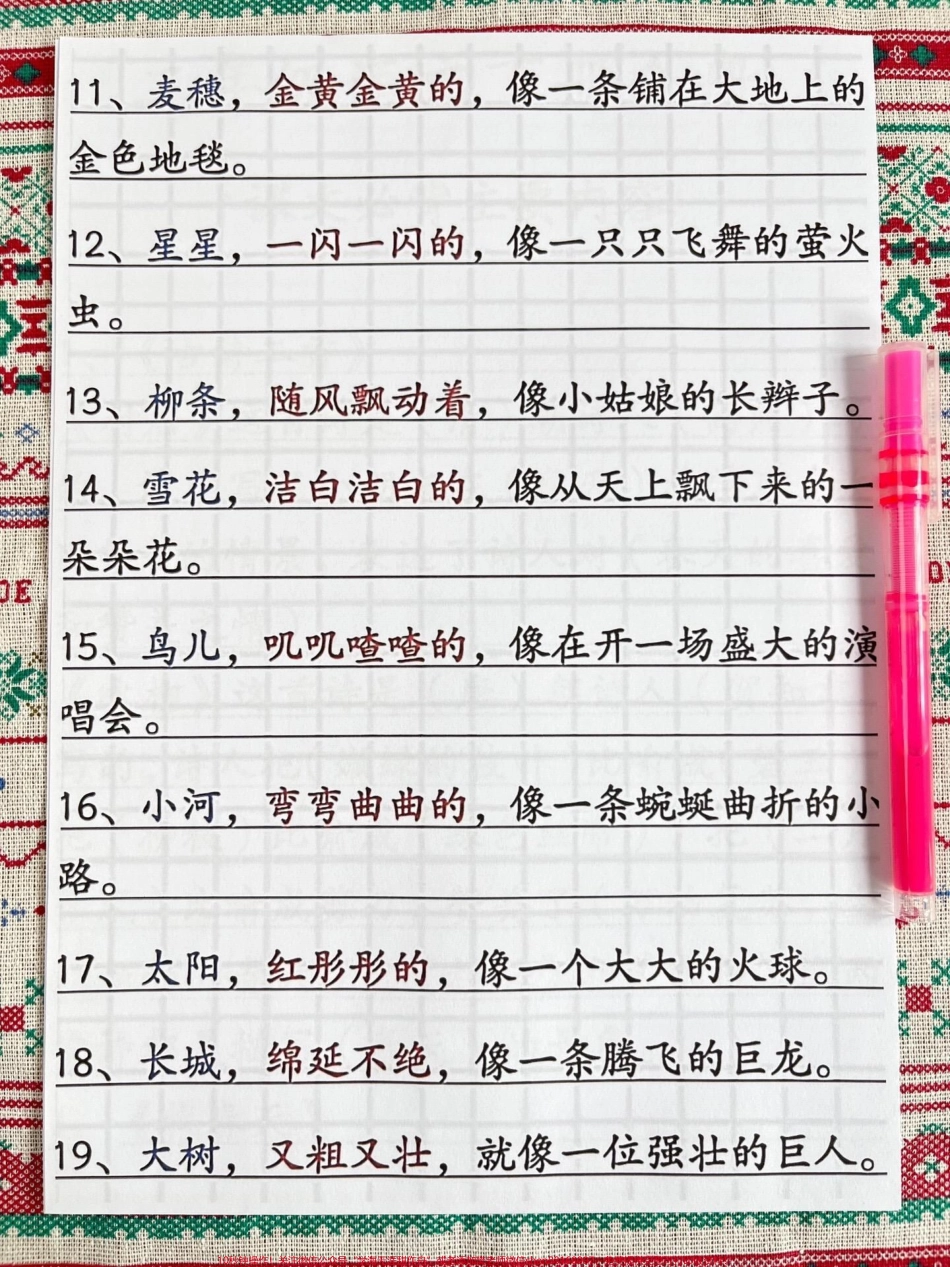 11、麦穗，金黄金黄的，像一条铺在大地上的
金色地毯。
12、星星，一闪一闪的，像一只只飞舞的萤火
虫。
13、柳条，随风飘动着，像小姑娘的长辫子。
14、雪花，洁白洁白的，像从天上飘下来的一
朵朵花。
15、鸟儿，叽叽喳喳的，像在开一场盛大的演
唱会。
16、小河，弯弯曲曲的，像一条蜿蜒曲折的小
路。
17、太阳，红彤彤的，像一个大大的火球。
18、长城，绵延不绝，像一条腾飞的巨龙。
19、大树，又粗又壮，就像一位强壮的巨人。